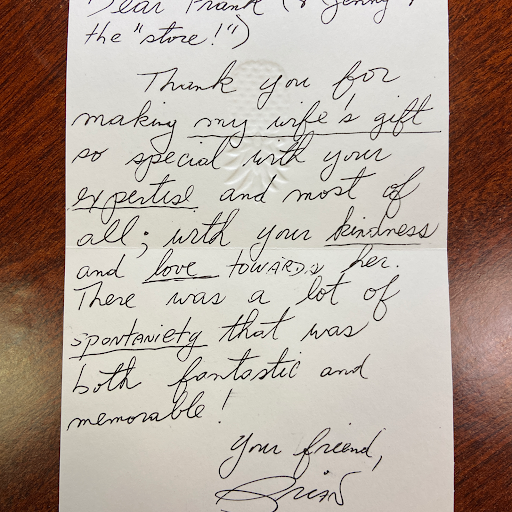 Dear Frank (& Jenny &
the "store!")
Thank you for
making my wife's gift
so special with your
expertise and most of
all; with your kindness
and love towards her.
There was a lot of
spontaniety that was
both fantastic and
memorable!
Your friend,
Brian